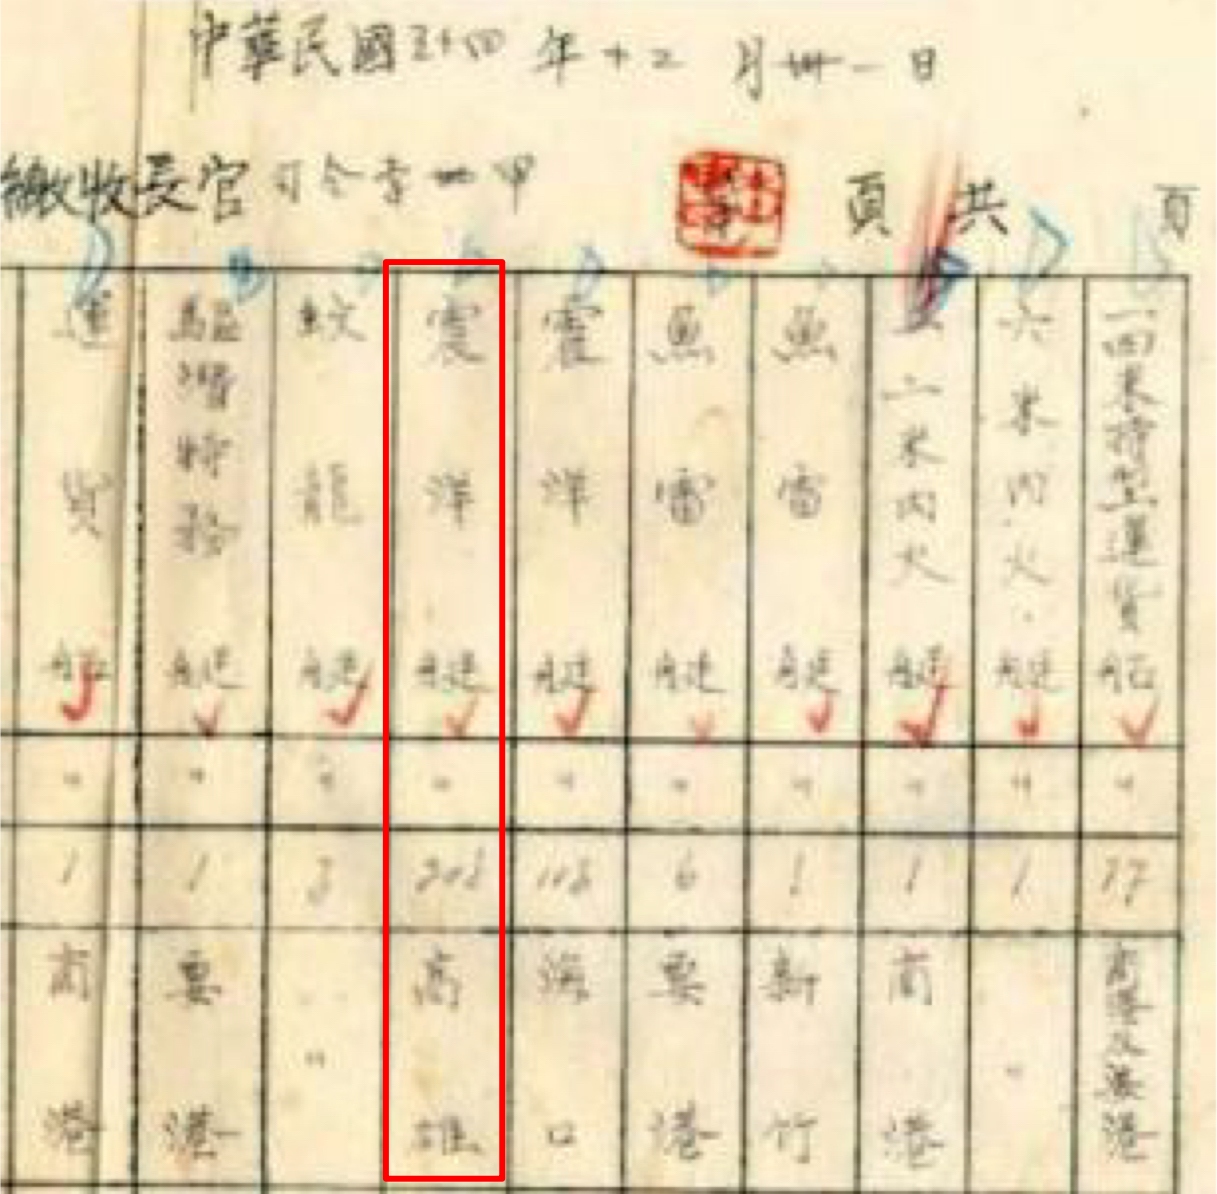 中華民國三十四年十二月卅一日
繳收長官司令李世甲
頁 共 頁
一四米特型運貨船 〃 17 商港及要港
六米內火艇 〃 1 〃
一二米內火艇 〃 1 商港
魚雷艇 〃 1 新竹
魚雷艇 〃 6 要港
震洋艇 〃 海口
震洋艇 〃 高雄
蛟龍艇 〃 3 〃
驅潛特務艇 〃 1 要港
運貨船 〃 1 商港